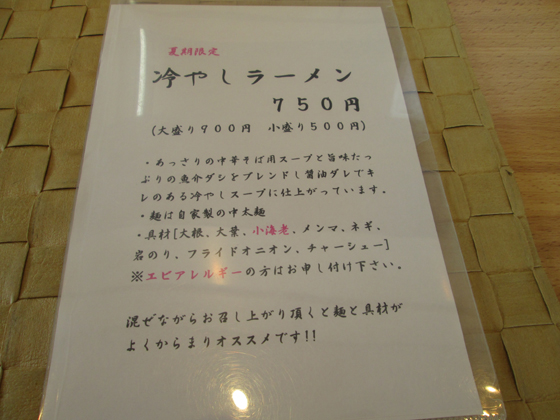 夏期限定
冷やしラーメン
７５０円
(大盛り９００円　小盛り５００円)
・あっさりの中華そば用スープと旨味たっ
ぷりの魚介ダシをブレンドし醤油ダレでキ
レのある冷やしスープに仕上がっています。
・麺は自家製の中太麺
・具材[大根、大葉、小海老、メンマ、ネギ、
岩のり、フライドオニオン、チャーシュー]
※エビアレルギーの方はお申し付け下さい。
混ぜながらお召し上がり頂くと麺と具材が
よくからまりオススメです!!